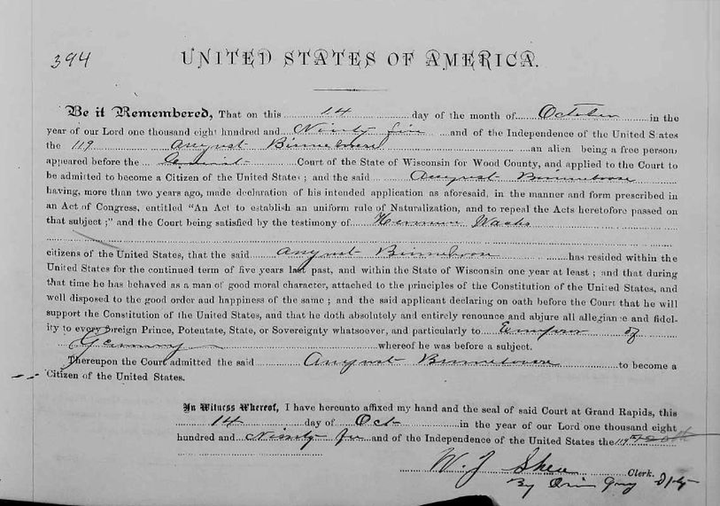 394
UNITED STATES OF AMERICA.
Be it Remembered, That on this 14 day of the month of October in the
year of our Lord one thousand eight hundred and Ninety five and of the Independence of the United States
the 119 August an alien being a free person,
appeared before the Court of the State of Wisconsin for Wood County, and applied to the Court to
be admitted to become a Citizen of the United States; and the said August
having, more than two years ago, made declaration of his intended application as aforesaid, in the manner and form prescribed in
an Act of Congress, entitled "An Act to establish an uniform rule of Naturalization, and to repeal the Acts heretofore passed on
that subject;" and the Court being satisfied by the testimony of Herman
citizens of the United States, that the said August has resided within the
United States for the continued term of five years last past, and within the State of Wisconsin one year at least; and that during
that time he has behaved as a man of good moral character, attached to the principles of the Constitution of the United States, and
well disposed to the good order and happiness of the same; and the said applicant declaring on oath before the Court that he will
support the Constitution of the United States, and that he doth absolutely and entirely renounce and abjure all allegiance and fidel-
ity to every foreign Prince, Potentate, State, or Sovereignty whatsoever, and particularly to Emperor of
Germany whereof he was before a subject.
Thereupon the Court admitted the said August to become a
Citizen of the United States.
In Witness Whereof, I have hereunto affixed my hand and the seal of said Court at Grand Rapids, this
14 day of Oct in the year of our Lord one thousand eight
hundred and Ninety five and of the Independence of the United States the 119
W. J. Clerk.
By